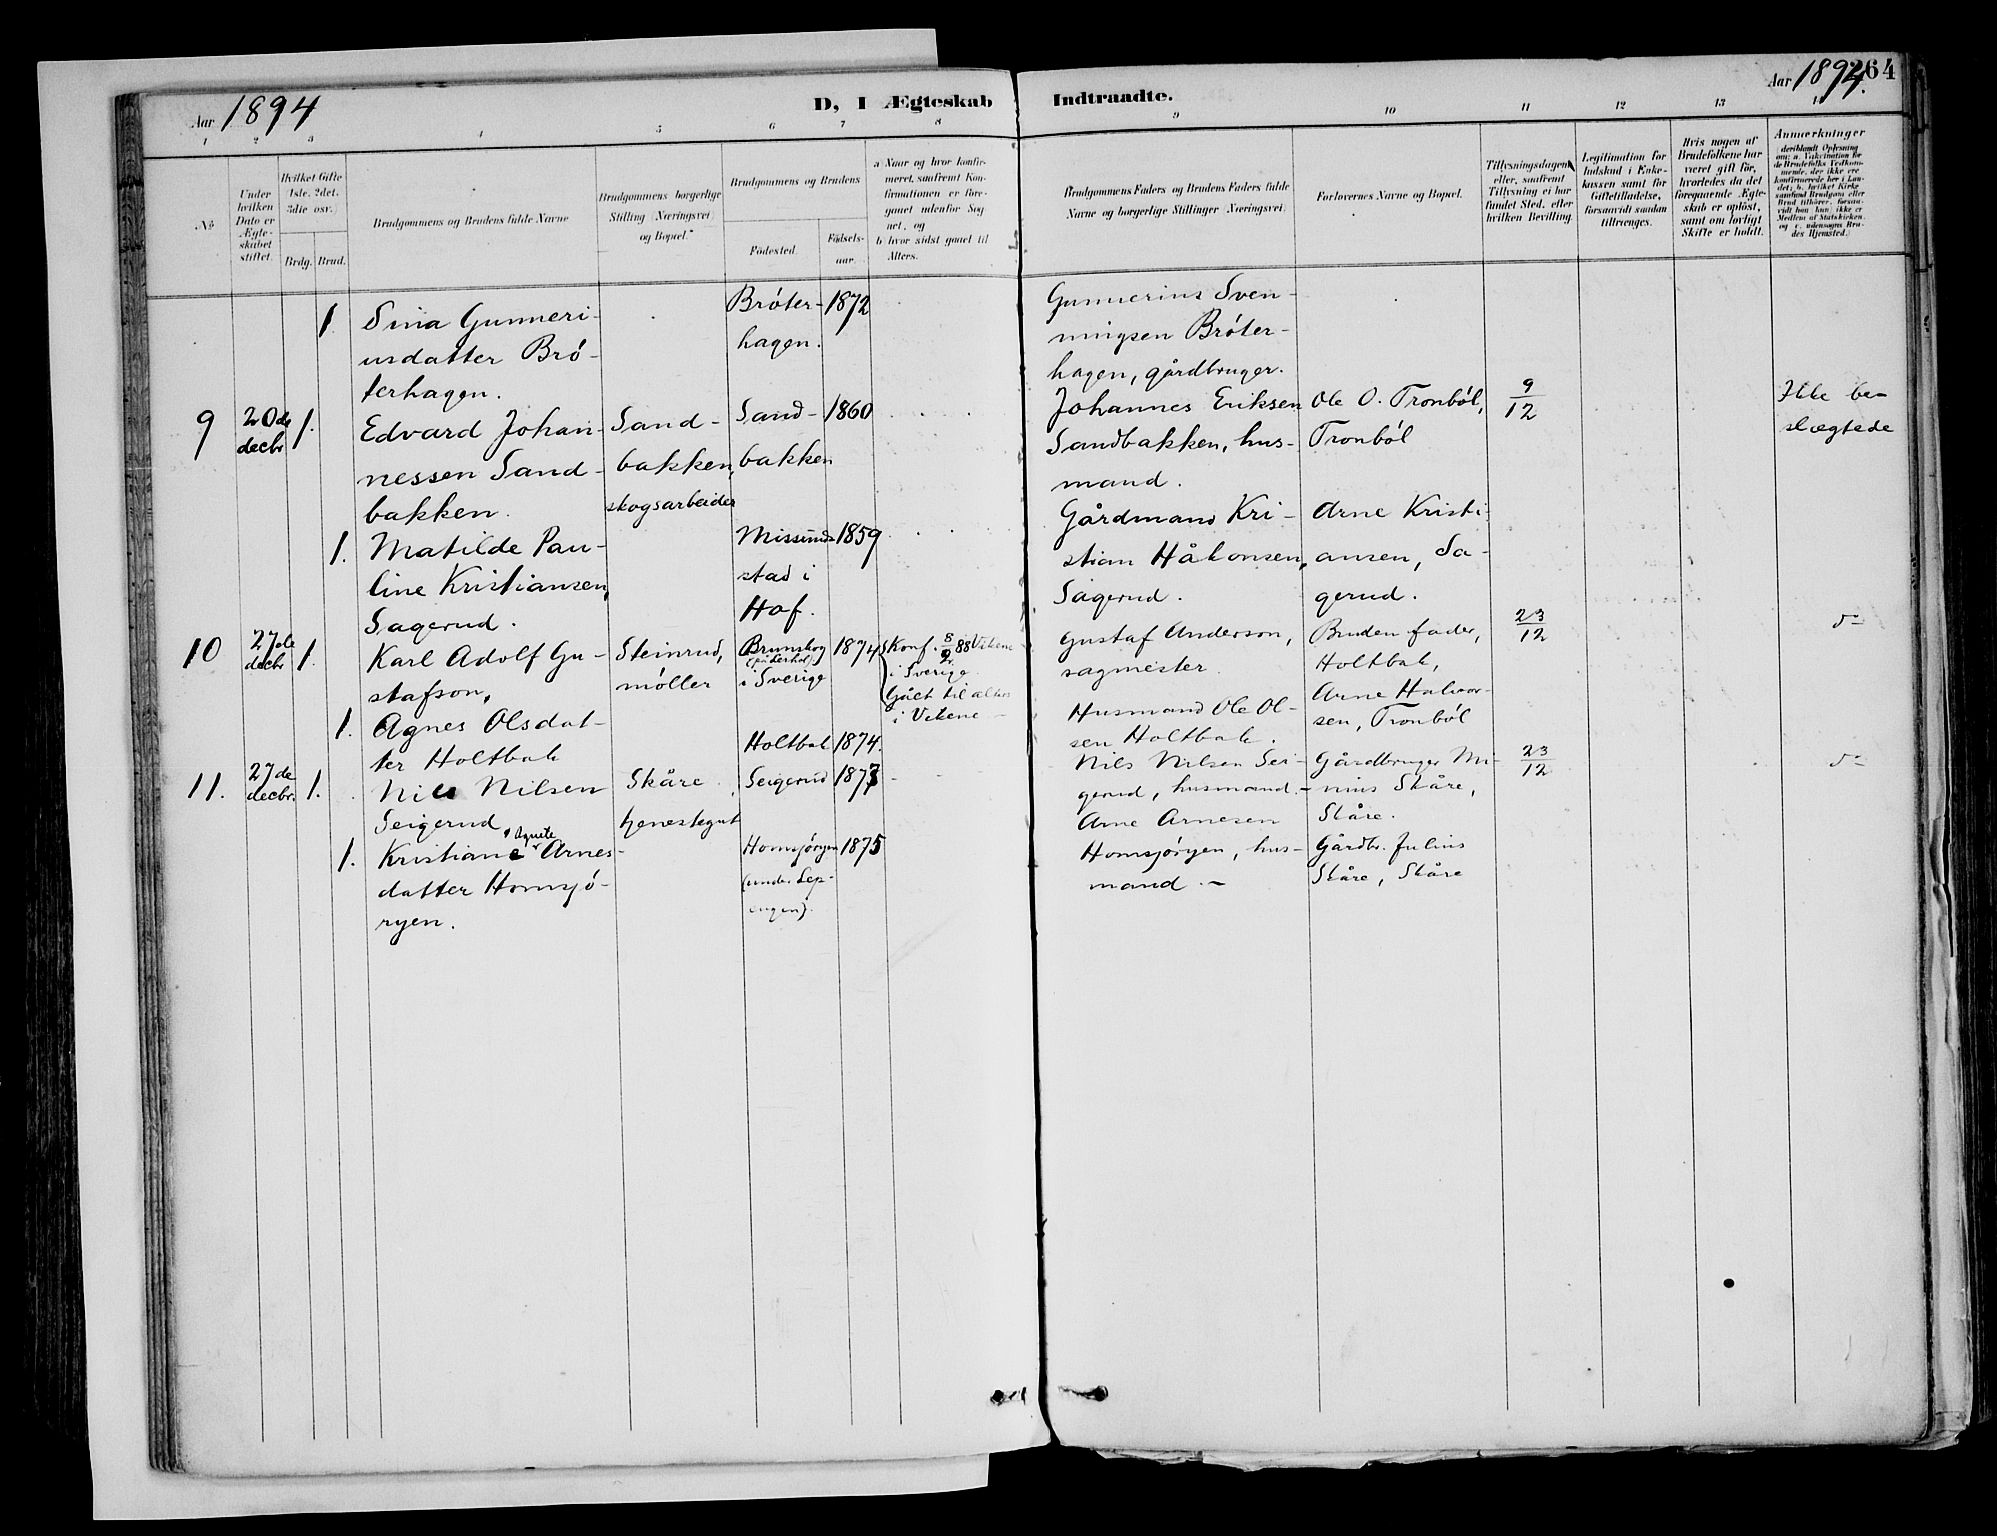 Aar 1894
D, I Ægteskab
Indtraadte.
Aar 1894.
264
1 2 3 4 5 6 7 8
9 10 11 12 13 14
No
Under hvilken Dato er Ægteskabet stiftet.
Hvilket Gifte (1ste, 2det, 3die osv.)
Brdg. Brud.
Brudgommens og Brudens fulde Navne
Brudgommens borgerlige Stilling (Næringsvei) og Bopæl.
Brudgommens og Brudens
Födested.
Födsels-aar.
a Naar og hvor konfirmeret, saafremt Konfirmationen er foregaaet udenfor Sognet, og
b hvor sidst gaaet til Alters.
Brudgommens Faders og Brudens Faders fulde Navne og borgerlige Stillinger (Næringsvei)
Forlovernes Navne og Bopæl.
Tillysningsdagen eller, saafremt Tillysning ei har fundet Sted, efter hvilken Bevilling.
Legitimation for Indskud i Enkekassen samt for Giftetilladelse, forsaavidt saadan tiltrænges.
Hvis nogen af Brudefolkene har været gift för, hvorledes da det foregaaende Ægteskab er oplöst, samt om lovligt Skifte er holdt.
Anmærkninger
deriblandt Oplysning om: a. Vakcination for de Brudefolks Vedkommende, der ikke ere konfirmerede her i Landet; b. hvilket Kirkesamfund Brudgom eller Brud tilhörer, forsaavidt han (hun) ikke er Medlem af Statskirken, og c. udensogns Brudes Hjemsted.)
1. Sina Gunneri-
usdatter Brö-
terhagen.
Bröter-
hagen.
1872
Gunnerius Sven-
ningsen Bröter-
hagen, gårdbruger.
9 20de
decbr
1. Edvard Johan-
nessen Sand-
bakken.
Sand-
bakken,
skogsarbeider
Sand-
bakken
1860
Johannes Eriksen
Sandbakken, hus-
mand.
Ole O. Tronböl,
Tronböl
9/12
Ikke be-
slægtede
1. Matilde Pau-
line Kristiansen,
Sagerud.
Missund-
stad i
Hof.
1859
Gårdmand Kri-
stian Håkonsen,
Sagerud.
Arne Kristi-
ansen, Sa-
gerud.
10 27de
decbr
1. Karl Adolf Gu-
stafson,
Steinrud,
möller
Brunskog
i Sverige
1874
Konf. 8/9 88 Vikene
i Sverige.
Gået til alters
i Vikene
Gustaf Anderson,
sagmester
Brudens fader,
Holtbak,
23/12
1. Agnes Olsdat-
ter Holtbak
Holtbak
1874.
Husmand Ole Ol-
sen Holtbak.
Arne Halvor-
sen, Tronböl
11. 27de
decbr.
1. Nils Nilsen
Seigerud
Skåre,
tjenestegut
Seigerud
1873
Nils Nilsen Sei-
gerud, husmand.
Gårdbruger Mi-
nius Skåre,
Skåre.
23/12
1. Kristiane Agnete Arnes-
datter Homsjö-
ryen.
Homsjöryen
(under Lep-
engen).
1875
Arne Arnesen
Homsjöryen, hus-
mand. -
Gårdbr. Julius
Skåre, Skåre